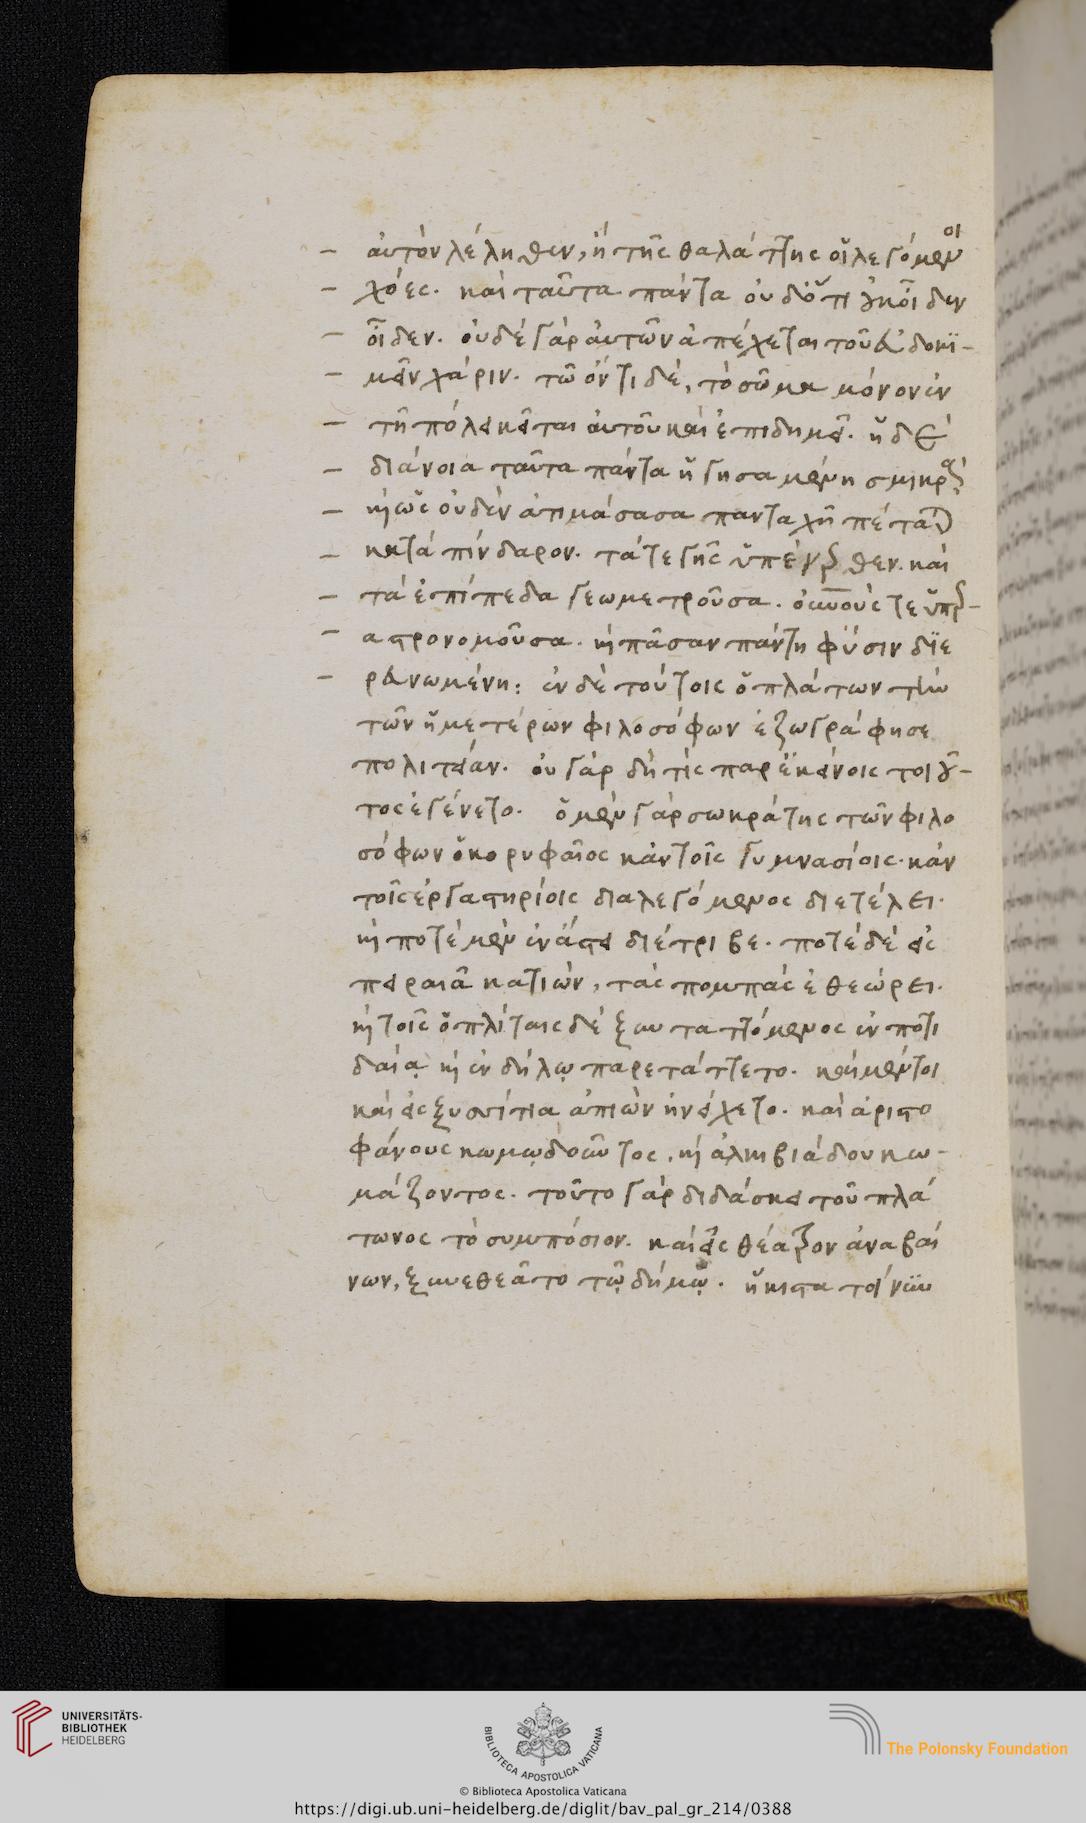 αὐτὸν λέληθεν, ἢ τῆς θαλάττης οἱ λεγόμενοι
χόες. καὶ ταῦτα πάντα οὐδ' ὅτι οὐκ οἶδεν
οἶδεν. οὐδὲ γὰρ αὐτῶν ἀπέχεται τοῦ εὐδοκι-
μεῖν χάριν. τῶ ὄντι δὲ, τὸ σῶμα μόνον ἐν
τῆ πόλει κεῖται αὐτοῦ καὶ ἐπιδημεῖ. ἡ δὲ
διάνοια ταῦτα πάντα ἡγησαμένη σμικρὰ
καὶ ὡς οὐδὲν ἀτιμάσασα πανταχῆ πέταται
κατὰ πίνδαρον. τά τε γῆς ὑπένερθεν. καὶ
τὰ ἐπίπεδα γεωμετροῦσα. οὐρανοῦς τε ὕπερ-
αστρονομοῦσα. καὶ πᾶσαν πάντη φύσιν διε
ρευνωμένη: ἐν δὲ τούτοις ὁ πλάτων τὴν
τῶν ἡμετέρων φιλοσόφων ἐζωγράφησε
πολιτείαν. οὐ γὰρ δή τις παρ' ἐκείνοις τοιοῦ-
τος ἐγένετο. ὁ μὲν γὰρ σωκράτης τῶν φιλο
σόφων ὁ κορυφαῖος κἀν τοῖς γυμνασίοις. κἀν
τοῖς ἐργαστηρίοις διαλεγόμενος διετέλει.
καὶ ποτὲ μὲν ἐν ἄστει διέτριβε. ποτὲ δὲ εἰς
πειραιᾶ κατιὼν, τὰς πομπὰς ἐθεώρει.
καὶ τοῖς ὁπλίταις δὲ ξυντατόμενος ἐν ποτι
δαίᾳ καὶ ἐν δήλῳ παρετάττετο. καὶ μέντοι
καὶ εἰς ξυσσίτια ἀπιὼν ἠνείχετο. καὶ ἀριστο
φάνους κωμῳδοῦντος, καὶ ἀλκιβιάδου κω-
μάζοντος. τοῦτο γὰρ διδάσκει τοῦ πλά
τωνος τὸ συμπόσιον. καὶ εἰς θέατρον ἀναβαί
νων, ξυνεθεᾶτο τῷ δήμῳ. ἥκιστα τοίνυν
UNIVERSITÄTS-
BIBLIOTHEK
HEIDELBERG
BIBLIOTECA APOSTOLICA VATICANA
The Polonsky Foundation
© Biblioteca Apostolica Vaticana
https://digi.ub.uni-heidelberg.de/diglit/bav_pal_gr_214/0388